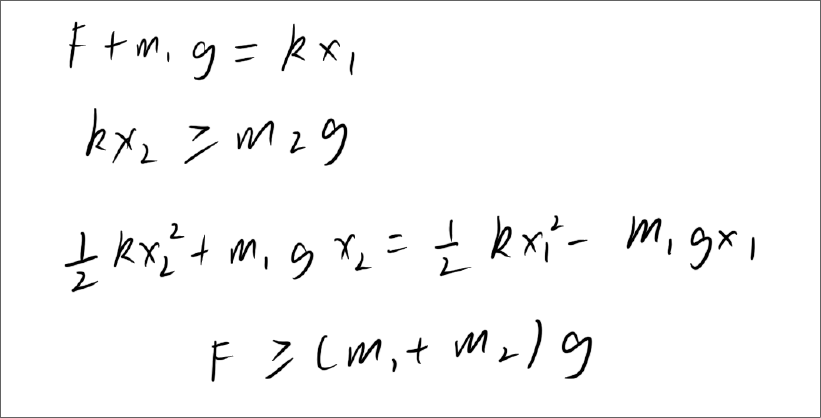 F + m₁ g = k x₁
k x₂ ≥ m₂ g
½ k x₂² + m₁ g x₂ = ½ k x₁² − m₁ g x₁
F ≥ (m₁ + m₂) g